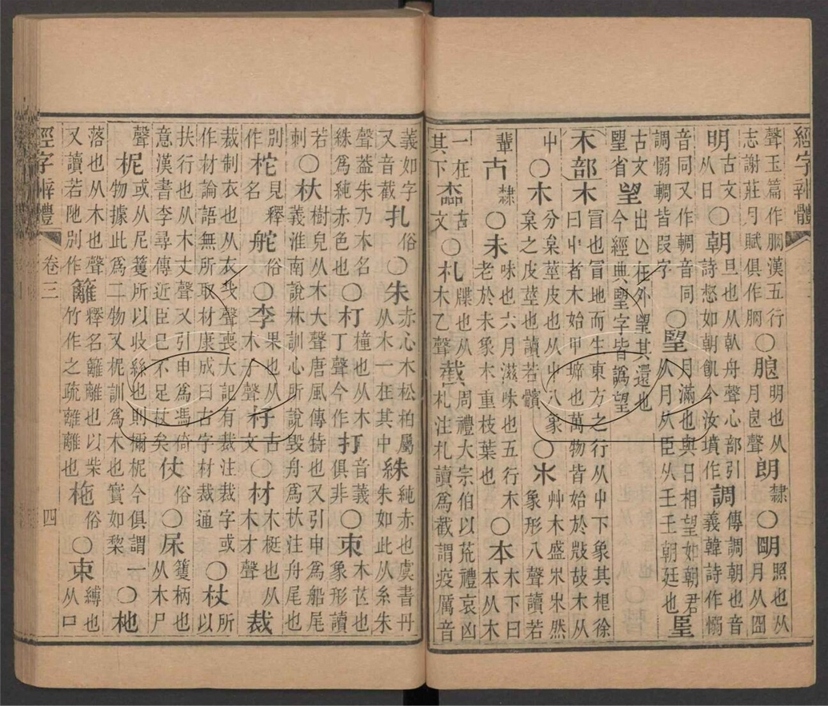 經字辨體
聲玉篇作䏎漢五行志謝莊月賦俱作朒○朖明也从月良聲朗隸○朙照也从月从囧
明古文从日○朝旦也从倝舟聲心部引詩惄如朝飢今汝墳作調傳調朝也音義韓詩作惆
音同又作輖音同調惆輖皆叚字○朢月滿也與日相望如朝君从月从臣从壬壬朝廷也𦣠
古文朢省望出亾在外望其還也今經典朢字皆譌望
木部木冒也冒地而生東方之行从屮下象其根徐曰屮者木始甲㙻也萬物皆始於㪔故木从
屮○𣎳分枲莖皮也从屮八象枲之皮莖也讀若髕○𣎵艸木盛𣎵𣎵然象形八聲讀若
輩巿隸○未味也六月滋味也五行木老於未象木重枝葉也○本木下曰本从木
一在其下𣓏古文○札牒也从木乙聲㦰周禮大宗伯以荒禮哀凶札注札讀爲截謂疫厲音
義如字又音截扎俗○朱赤心木松柏屬从木一在其中絑純赤也虞書丹朱如此从糸朱
聲葢朱乃本名絑爲純赤色也○朾橦也从木丁聲今作打音義俱非○朿木芒也象形讀
若刺○杕樹皃从木大聲唐風傳特也又引申爲船尾義淮南說林訓心所說毀舟爲杕注舟尾也
別作柁見釋名舵俗○李果也从木子聲杍古文○材木梃也从木才聲裁
裁制衣也从衣𢦏聲喪大記有裁注裁字或作材論語無所取材康成曰古字材裁通○杖所以
扶行也从木丈聲又引申爲馮倚意漢書李尋傳近臣已不足杖矣仗俗○杘籆柄也从木尸
聲柅或从尼籆所以收絲也則檷柅今俱謂一物據此爲二物又柅訓爲木也實如棃○杝
落也从木也聲又讀若阤別作籬釋名籬離也以柴竹作之疏離離也柂俗○束縛也从口
經字辨體 卷三 四